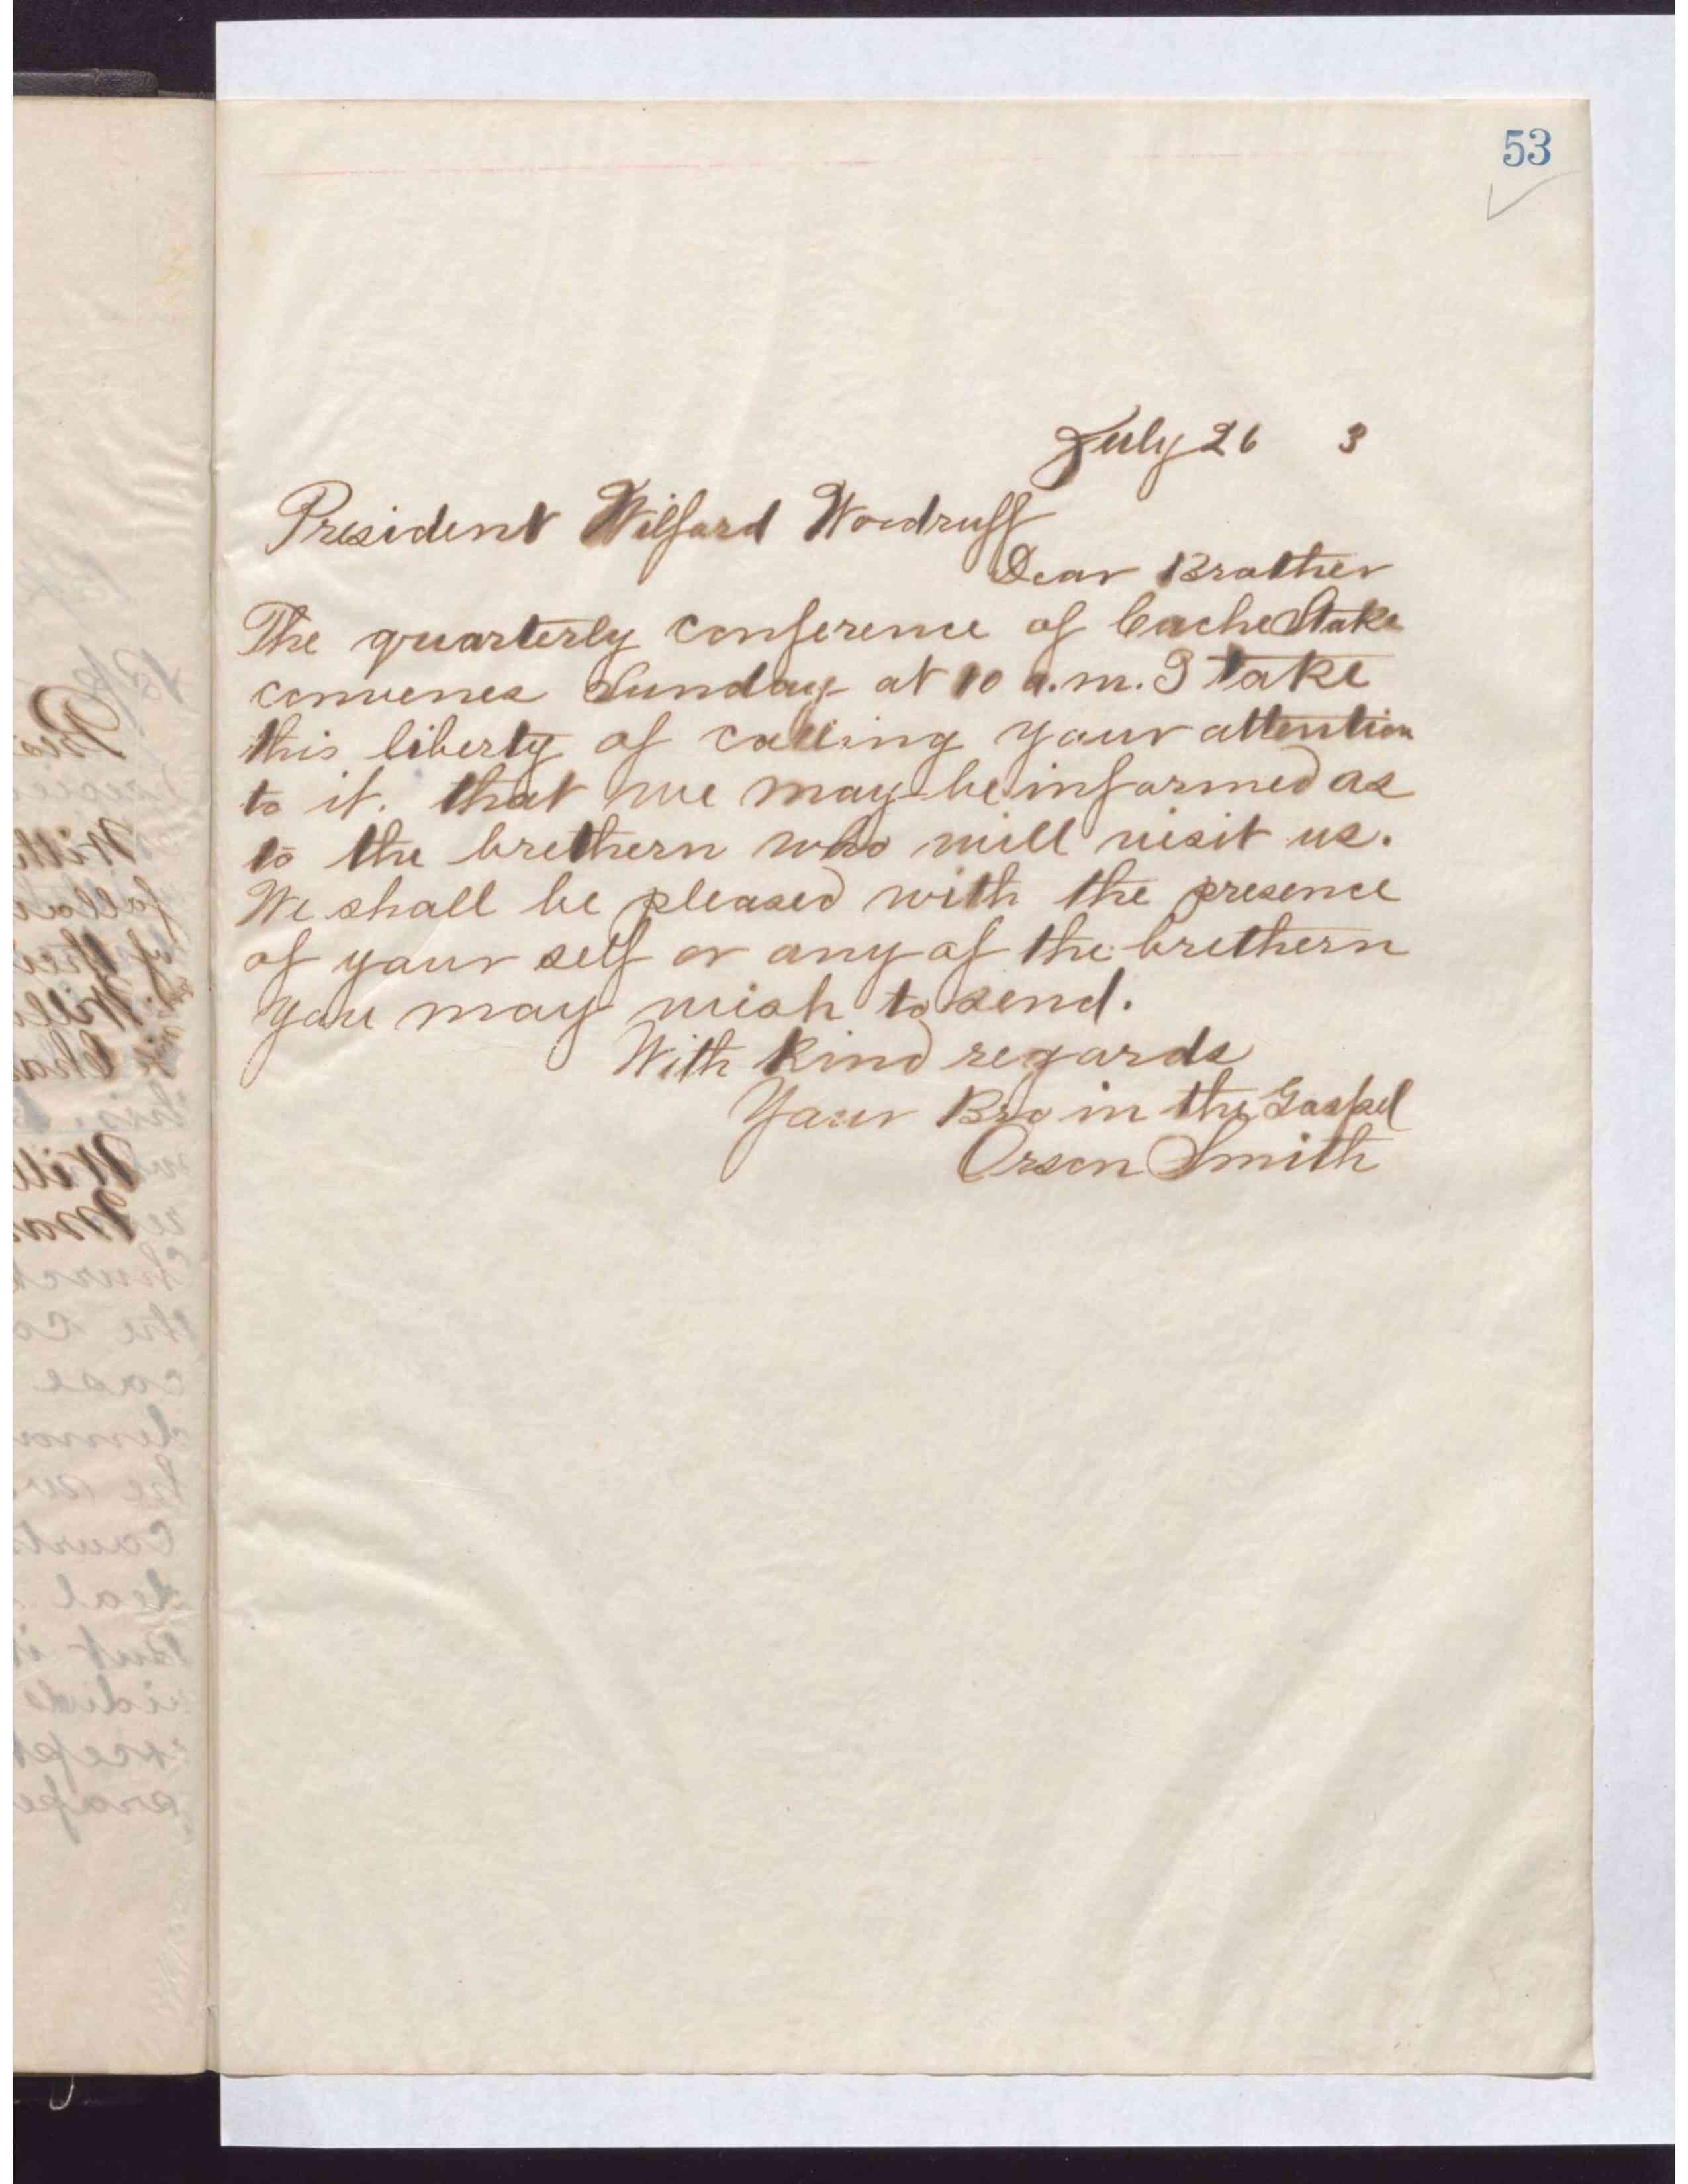 53
July 26 3
President Wilford Woodruff
Dear Brother
The quarterly conference of Cache Stake
convenes Sunday at 10 a.m. I take
this liberty of calling your attention
to it. that we may be informed as
to the brethern who will visit us.
We shall be pleased with the presence
of your self or any of the brethern
you may wish to send.
With Kind regards
Your Bro in the Gospel
Orson Smith